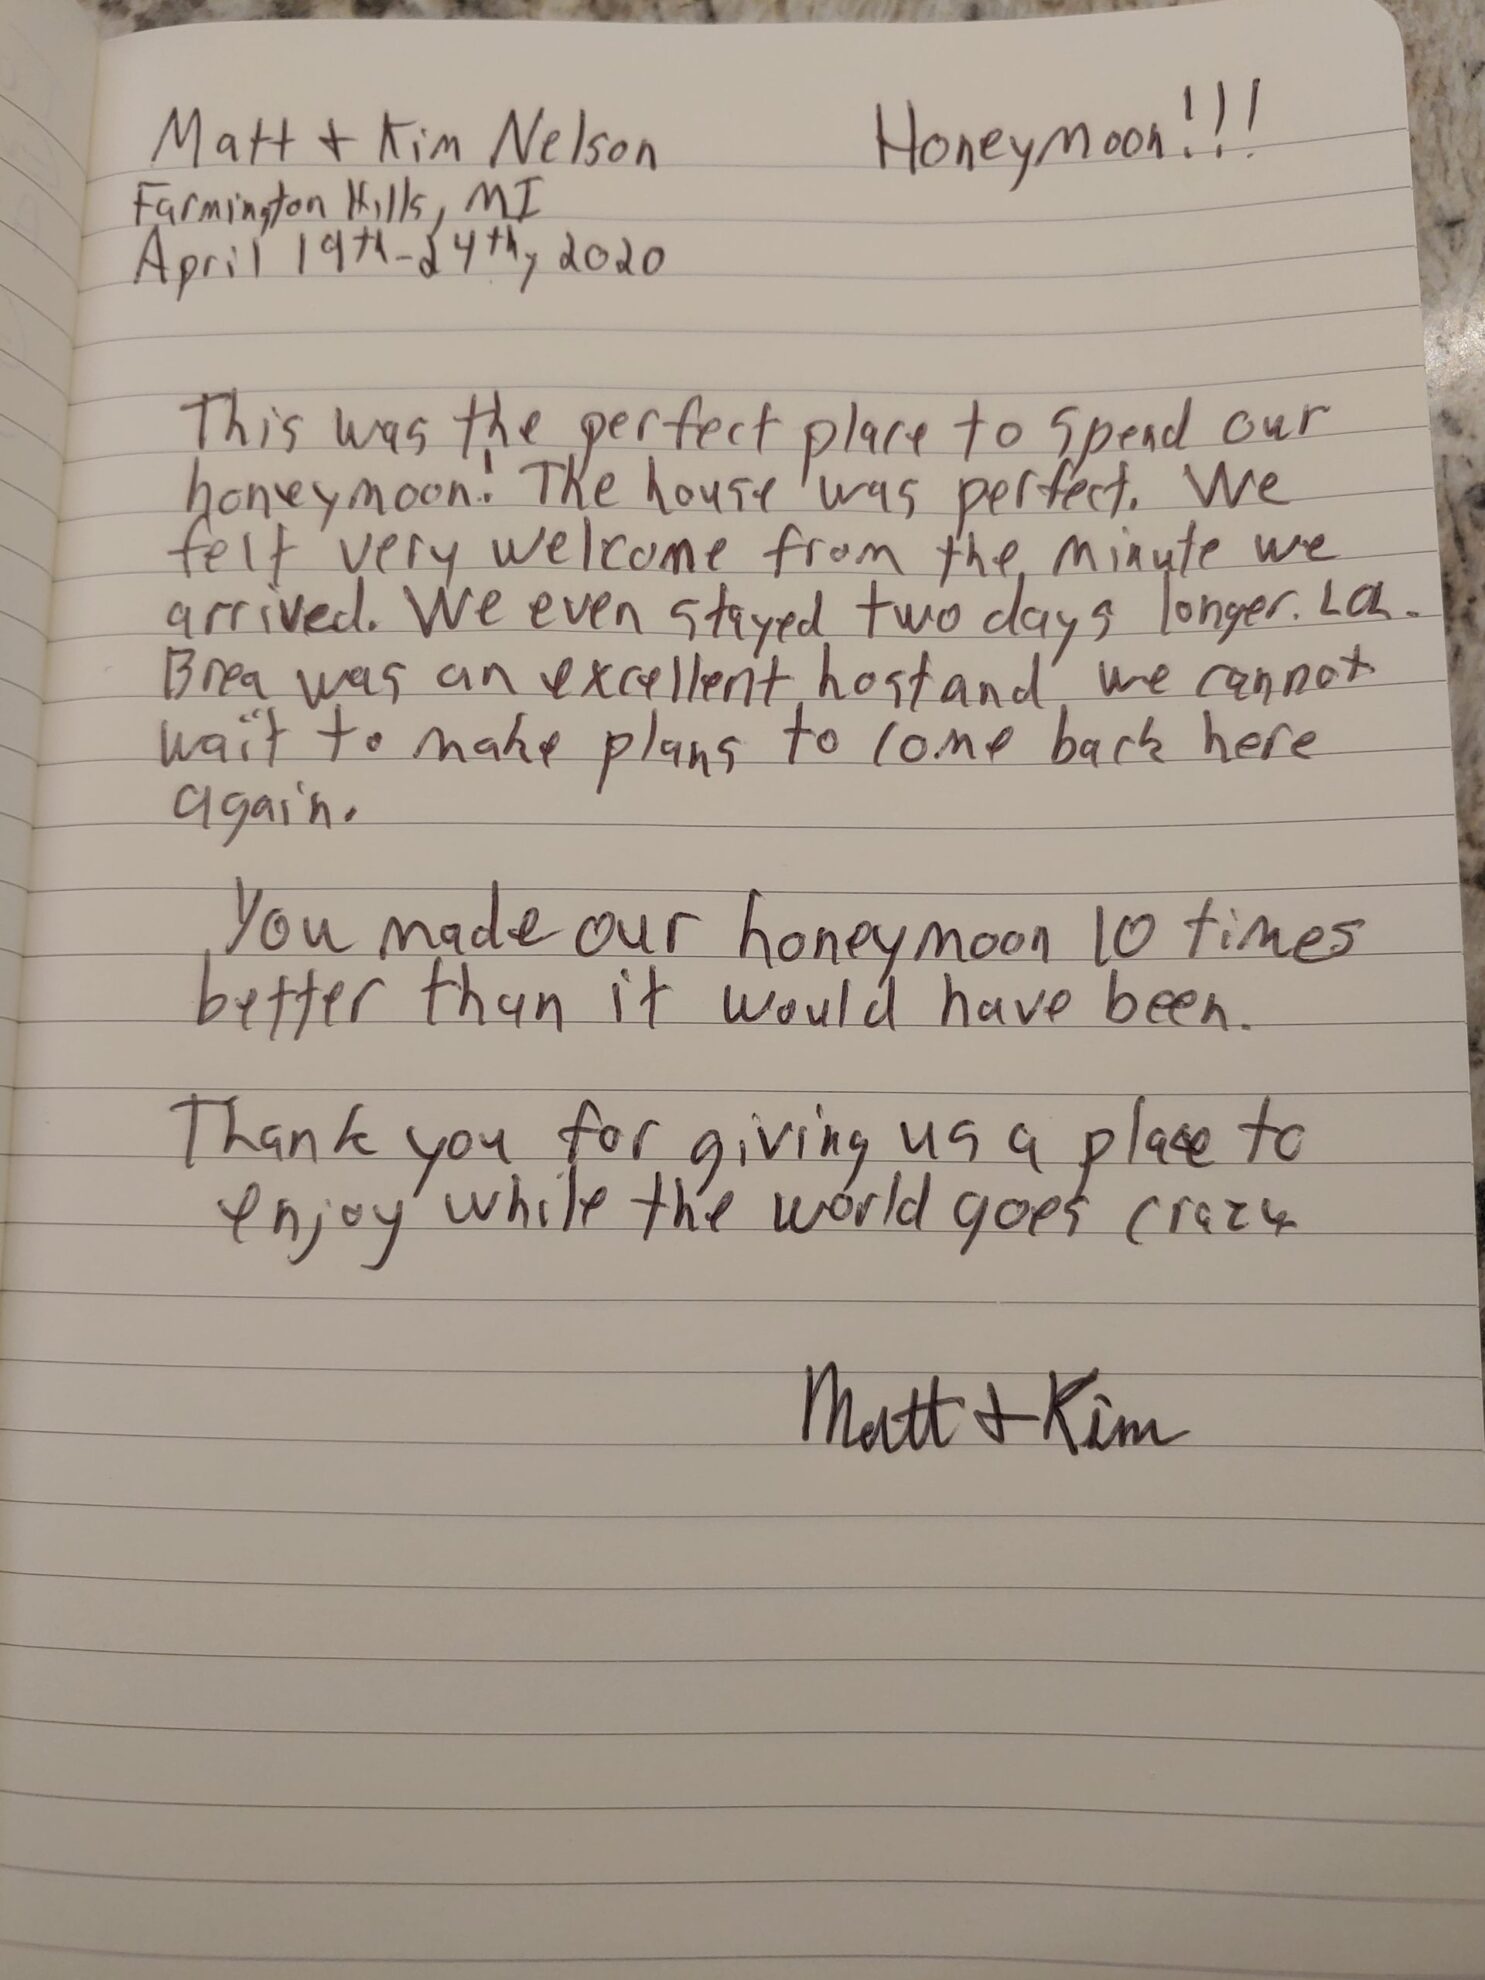 Matt + Kim Nelson Honeymoon!!!
Farmington Hills, MI
April 19th-24th, 2020
This was the perfect place to spend our
honeymoon! The house was perfect. We
felt very welcome from the minute we
arrived. We even stayed two days longer. La
Brea was an excellent host and we cannot
wait to make plans to come back here
again.
You made our honeymoon 10 times
better than it would have been.
Thank you for giving us a place to
enjoy while the world goes crazy
Matt + Kim